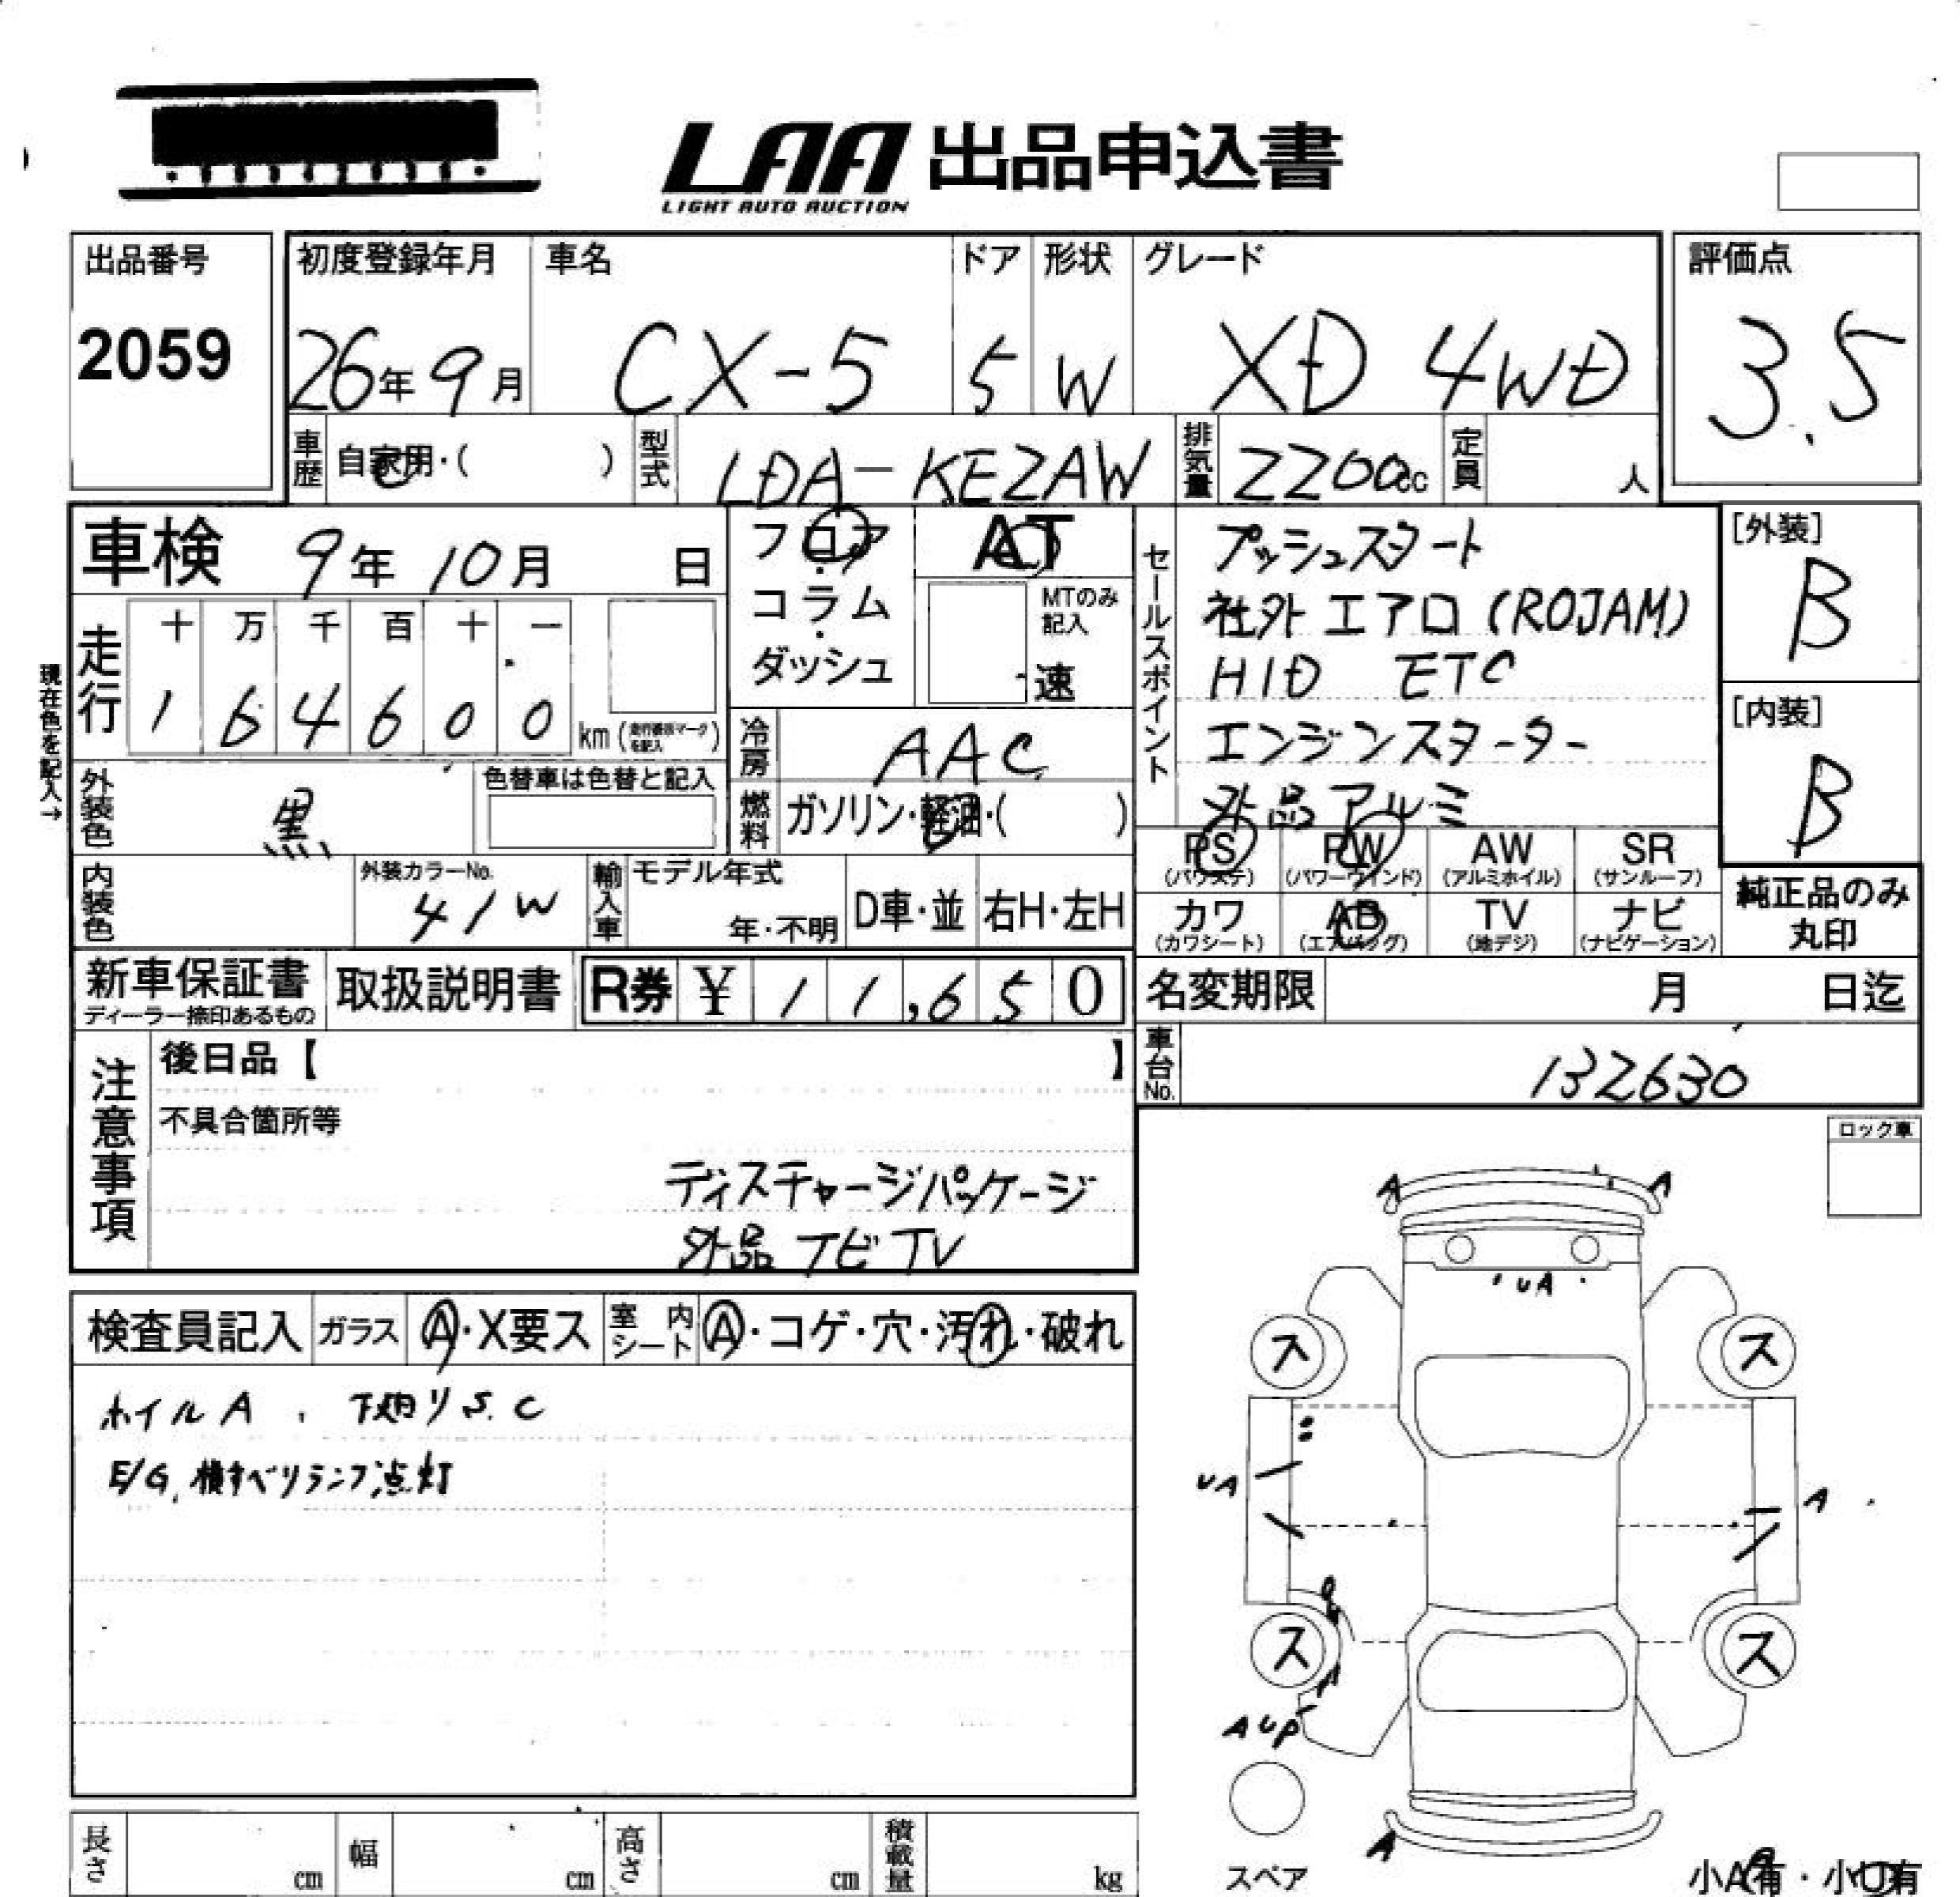 LAA 出品申込書
LIGHT AUTO AUCTION
出品番号
2059
初度登録年月
26年9月
車名
CX-5
ドア
5
形状
W
グレード
XD 4WD
評価点
3.5
車歴
自家用・( )
型式
LDA-KE2AW
排気量
2200cc
定員
人
車検 9年10月 日
現在色を記入→
走行
十 万 千 百 十 一
1 6 4 6 0 0 km
フロア・コラム・ダッシュ
AT
MTのみ記入
速
冷房
AAC
燃料
ガソリン・軽油・( )
外装色
黒
色替車は色替と記入
内装色
外装カラーNo.
41W
輸入車
モデル年式
年・不明
D車・並
右H・左H
セールスポイント
プッシュスタート
社外エアロ(ROJAM)
HID ETC
エンジンスターター
外品アルミ
[外装]
B
[内装]
B
PS
(パワステ)
PW
(パワーウインド)
AW
(アルミホイル)
SR
(サンルーフ)
カワ
(カワシート)
AB
(エアバッグ)
TV
(地デジ)
ナビ
(ナビゲーション)
純正品のみ
丸印
新車保証書
ディーラー捺印あるもの
取扱説明書
R券 ¥11,650
名変期限 月 日迄
車台No.
132630
注意事項
後日品【 】
不具合箇所等
ディスチャージパッケージ
外品ナビTV
ロック車
検査員記入
ガラス
A・X要ス
室内シート
A・コゲ・穴・汚れ・破れ
ホイルA、下廻りS.C
E/G,横すべりランプ点灯
A
A
UA
ス
ス
UA
A
ス
ス
AUP
A
スペア
小A有・小U有
長さ
cm
幅
cm
高さ
cm
積載量
kg